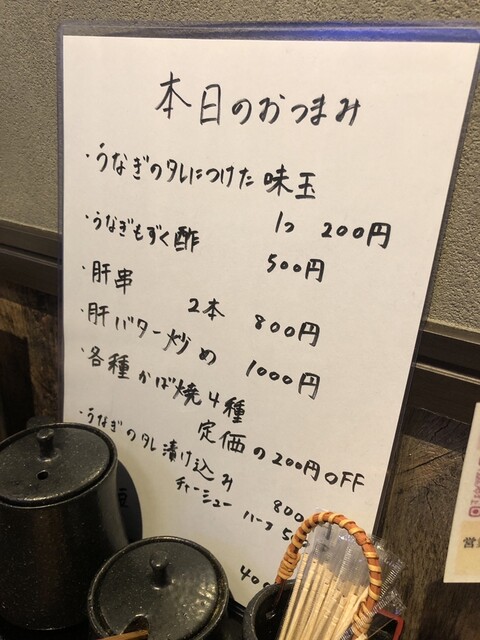 本日のおつまみ
・うなぎのタレにつけた味玉
1つ 200円
・うなぎもずく酢
500円
・肝串
2本 800円
・肝バター炒め 1000円
・各種かば焼4種
定価の200円OFF
・うなぎのタレ漬け込み
チャーシュー 800
ハーフ 50
400
営